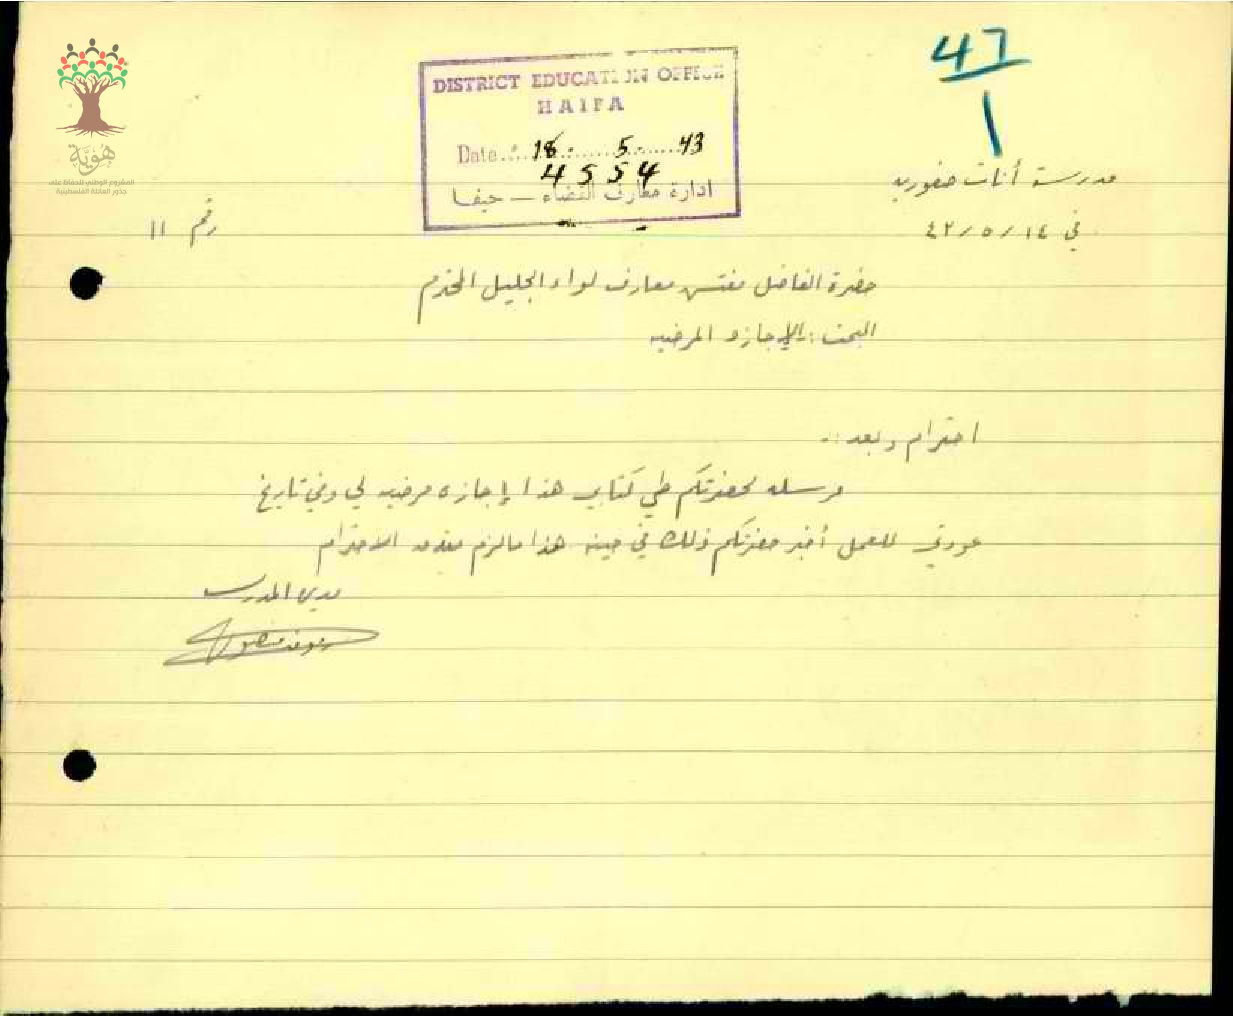 47
1
DISTRICT EDUCATION OFFICE
HAIFA
Date... 18. 5. 43
4554
ادارة معارف القضاء — حيفا
هوية
المشروع الوطني للحفاظ على
جذور العائلة الفلسطينية
مدرسة أناث صفوريه
في ١٤ / ٥ / ٤٣
رقم ١١
حضرة الفاضل مفتش معارف لواء الجليل المحترم
البحث :. الإجازه المرضيه
احترام وبعد :.
مرسله لحضرتكم طي كتابي هذا إجازه مرضيه لي وفي تاريخ
عودتي للعمل أخبر حضرتكم ذلك في حينه هذا مالزم مقدمه الاحترام
المدرسه